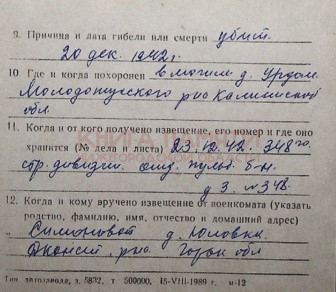 9. Причина и дата гибели или смерти убит
20 дек. 1942 г.
10 Где и когда похоронен в могиле д. Урдом
Молодотудского р-на Калининской
обл
11. Когда и от кого получено извещение, его номер и где оно
хранится (№ дела и листа) 23.12.42. 348го
стр. дивизии. отд. пульб-н.
д 3. №348.
12. Когда и кому вручено извещение от военкомата (указать
родство, фамилию, имя, отчество и домашний адрес)
Симоновой д.
рна. Горьк обл
Тип. автозавода, з. 5832, т 500000, 15-VIII-1989 г. м-12